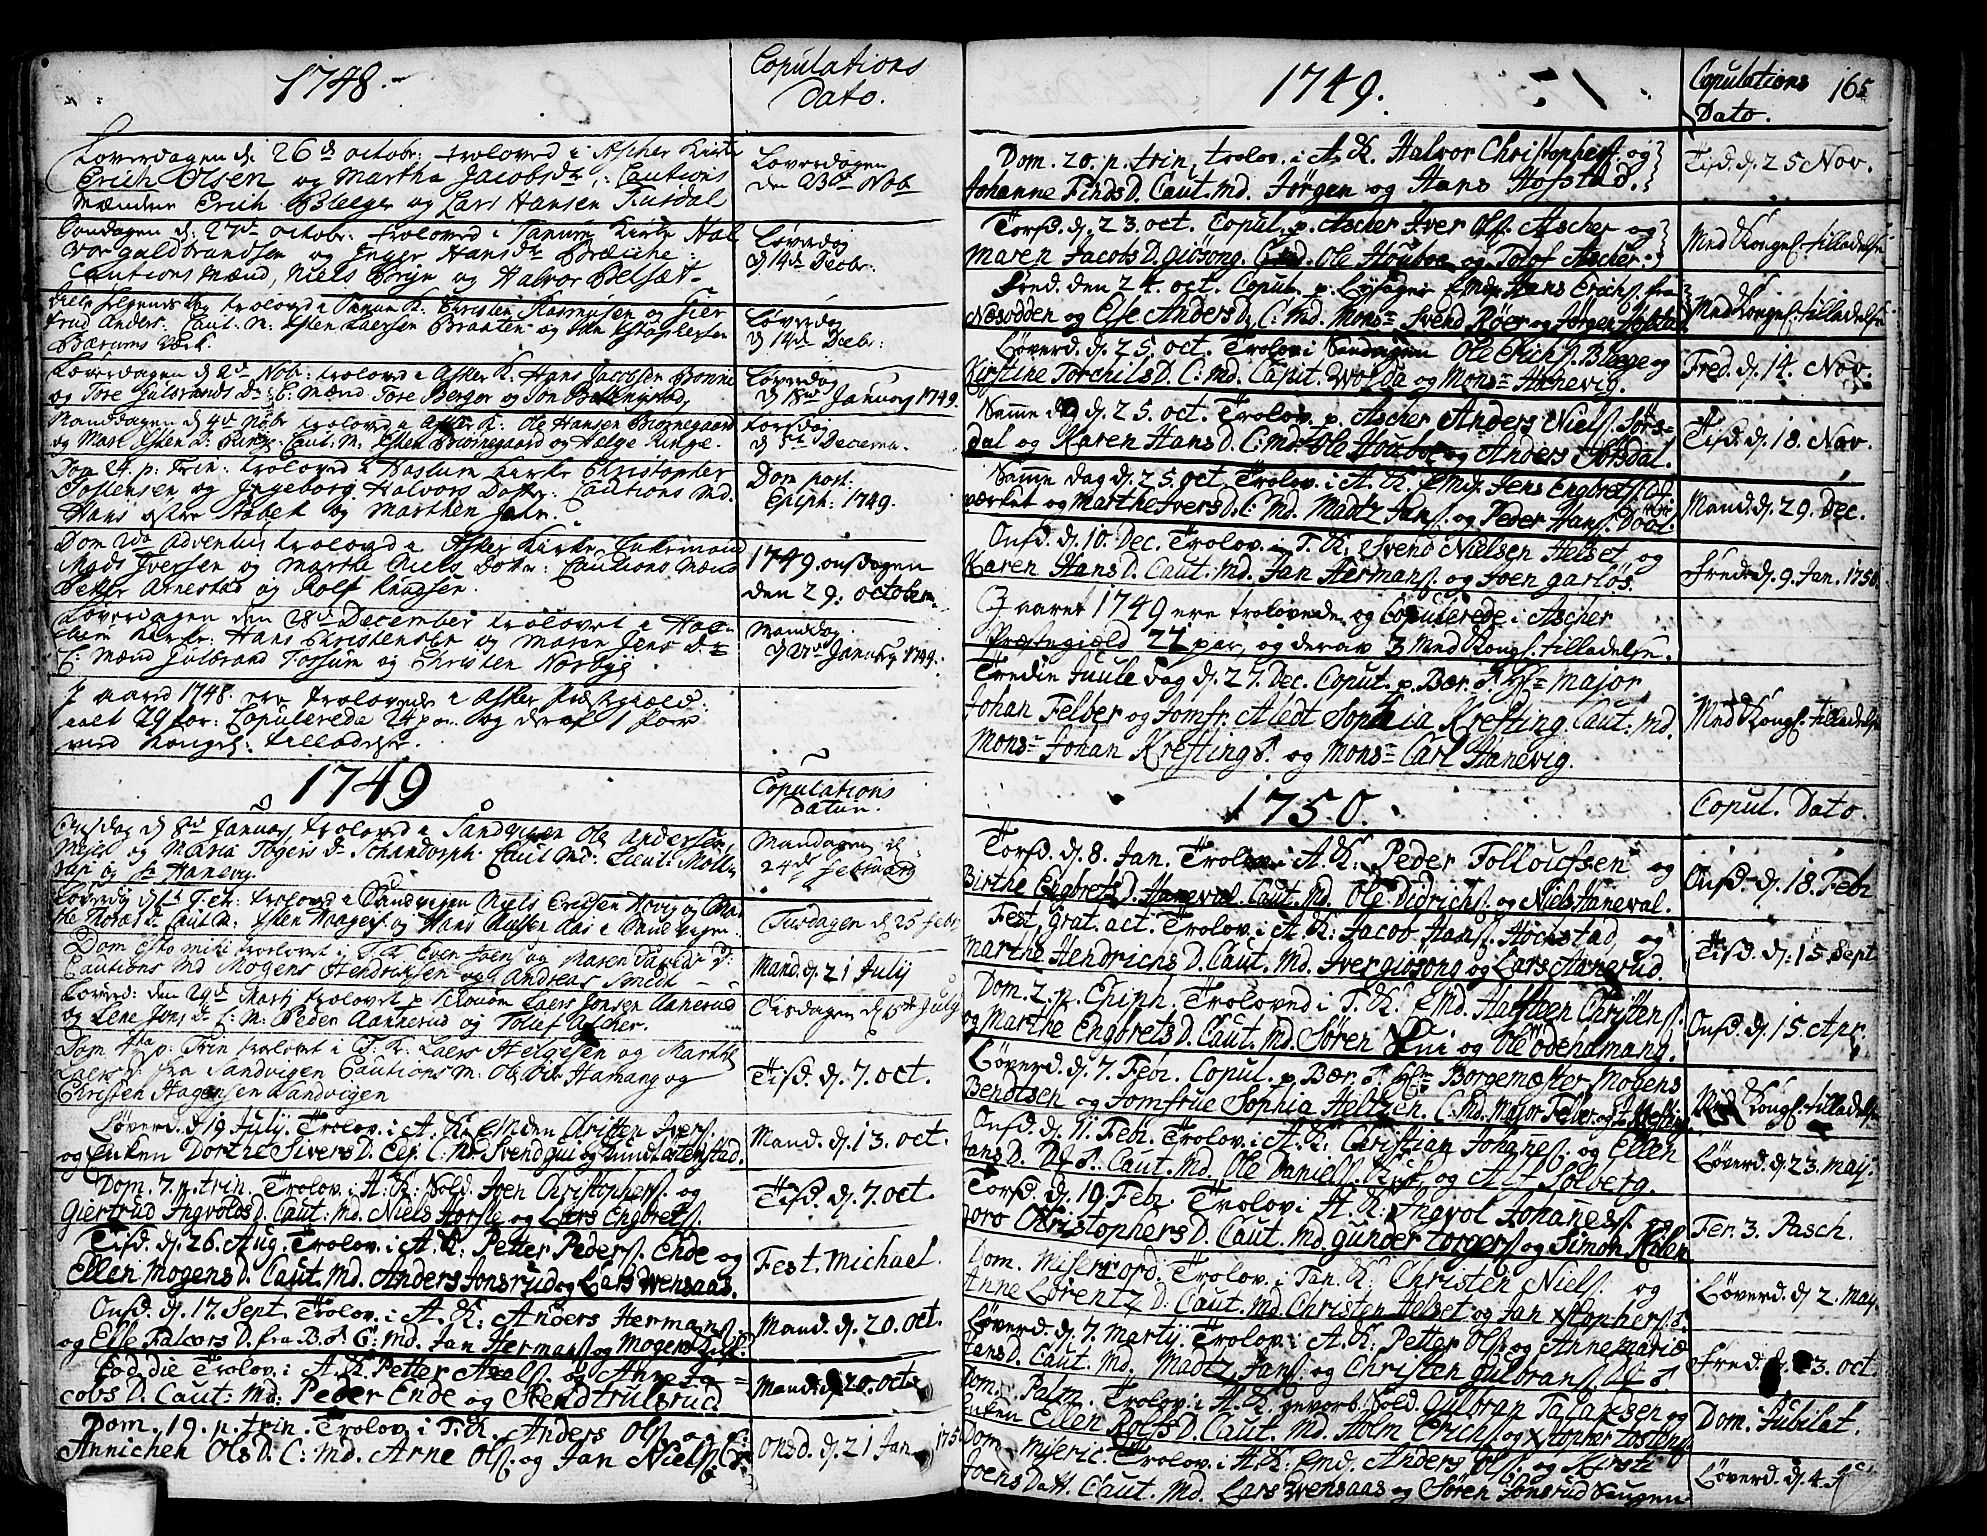 1748.
Copulations
Dato.
Løverdagen d: 26de octobr: troloved i Ascher Kirke
Erich Olsen og Martha Jacobsdr: Cautions
Mændene Erich Bleeger og Lars Hansen Tusdal
Løverdagen
den 23de Nob
Søndagen d: 27de octobr: trolovede i Tanum Kirke Hal
vor guldbrandsen og Inger Hansdr Bræche:
Cautions Mænd, Niels Bryn og Halvor Belsæt
Løverdag
d 14de Decbr:
trolovd i Tanum K: Christen Rasmusen og Gier
trud Anders: Caut: M: Esten Laersen Braaten og
Bærums Værk.
Løverdag
d 14de Decbr:
Løverdagen d 2de Nobr: trolovd i Asker K: Hans Jacobsen Bonni
og Tore Gulbrands Dr: C: Mænd Tore Berger og Jon
Løverdag
d 18de Januarj 1749.
Manddagen d 4de Nobr trolovd i Asker K: Ole Hansen Biørnegaard
og Mari Esten D: Ringe. Caut: M: Esten Biørnegaard og Helge Ringe.
Torsdag
d 5te Decemr.
Dom 24 p: Trin: trolovd i Haslum Kirke Christopher
Tostensen og Ingeborg Halvors Datr: Cautions Md.
Hans østre Stabek og Marthen Jahr.
Dom post
Epiph: 1749.
Dom 2da Adventus trolovd i Asker Kirke Enkemand
Mads Iversen og Martha Niels Datr: Cautions Mænd
Petter Arnestad og Rolf Knudsen.
1749. onsdagen
den 29. octobr.
Løverdagen den 28de December trolovet i Has-
lum Kirke: Hans Christensen og Maren Jens Dr
C: Mænd Gulbrand Tossum og Christen Norbye
Manddag
d 27de Januarj 1749.
I aaret 1748. ere trolovede i Asker Præstegield:
aalt 29 par: Copulerede 24 par og deraf 1 par
med Kongel: tilladelse.
1749
Copulations
Datum.
Onsdag d 8de Januarj trolovd i Sandvigen Ole Andersen
Meier og Maria Togers Dr Schandorph. Caut Md: Lieut: Moll
og Sr Hanevig.
Mandagen d
24de februarj
trolovd i Sandvigen Niels Erichsen Høvig og
Caut M: Esten Haagens: og Hans Nielsen Aas i Sandvigen
Tisdagen d 25 febr:
Dom Esto mihi trolovet i T: K: Even Joens: og Maren Davids D:
Cautions Md Mogens Hendrichsen og Andreas Smed
Mand. d. 21 Julij
Løverd: den 29de Martj trolovet p Schoum Laers Jonsen Aannerud
og Lene Jons dr C: M: Peder Aannerud og Tollef Ascher.
Tisdagen d
Dom 4ta p: Trin trolovet i T: K: Laers Helgesen og Marthe
Laers D: fra Sandvigen Cautions M: Ole Hamang og
Christen Hagensen Sandvigen
Tisd. d. 7. oct.
Løverd. d 19 Julij. Trolov. i A. K: Christen Ivers.
og Enken Dorthe Sivers D. C: Md Svend gui og Knud Østenstad.
Mand. d. 13. oct.
Dom. 7. p. trin. Trolov. i A. K: Sold. Iven Christophers. og
Giertrud Ingvolds D. Caut: Md. Niels Horsle og Lars Engbrets.
Tisd. d. 7. oct.
Tisd. d. 26. Aug. Trolov. i A. K: Petter Peders. Ende og
Ellen Mogens D. Caut. Md. Anders Jonsrud og Lars Svensaas.
Fest. Michael.
Onsd. d. 17. Sept. Trolov. i A. K: Anders Hermans.
og Else Falcors D. fra B. Md. Jan Hermans. og Mogens
Mand. d. 20. oct.
Eod. die Trolov. i A. K. Petter Axels. og Anne Ja=
cobs D. Caut: Md: Peder Ende og Stendtrulsrud
Mand. d 20. octr
Dom. 19. p. trin. Trolov. i T. K. Anders Ols. og
Annichen Ols D. C: Md. Arne Ols. og Jan Niels.
Onsd. d. 21 Jan. 175
1749.
Copulations
Dato.
165
Dom. 20. p. trin. trolov. i A. K. Halvor Christophers. og
Johanne Finds D. Caut. Md. Jørgen og Hans Hofstad.
Tisd. d. 25 Nov.
Torsd. d. 23. oct. Copul. p. Ascher Iver Ols. Ascher og
Maren Jacobs D. Giøsong. C. Md. Ole Houboe og Tolof Ascher.
Med Kongel. tilladelse
Fred. den 24. oct. Copul. p. Løxager Emd. Hans Erichs. fra
Næsodden og Else Anders D. C. Md. Mons= Svend Røer og Jørgen Hofstad
Med Kongel. tilladelse
Løverd. d. 25. oct. Trolov. i Sandvigen Ole Erichs. Bleege og
Kirstine Torchils D. C: Md. Capit. Wolda og Mons= Hanevig.
Fred. d. 14. Nov.
Samme dag d. 25. oct. Trolov. p. Ascher Anders Niels. Sørs=
dal og Karen Hans D. C: Md. Ole Houboe og Anders Sørsdal.
Tisd. d. 18. Nov.
Samme dag d. 25. oct. Trolov. i A. K: Emd. Jens Engbrets.
værket og Marthe Ivers D. C: Md. Madtz Jans. og Peder Hans.
Mand. d. 29. Dec.
Onsd. d. 10. Dec. Trolov. i T. K: Svend Nielsen Helset og
Karen Hans D. Caut: Md. Jan Hermans. og Joen Garløs.
Fred. d. 9. Jan. 1750.
I aaret 1749 ere trolovede og Copulerede i Ascher
Præstegield 22 par, og derav 3 Med Kongl. tilladelse.
Tredie Juule dag d. 27. Dec. Coput. p. Bær. Hr= Major
Johan Felber og Jomfr. Aledt Sophia Krefting. Caut. Md.
Mons= Johan Kreftings. og Mons= Carl Hanevig.
Med Kongel. tilladelse
1750.
Copul. Dato.
Torsd. d. 8. Jan. Trolov. i A. K: Peder Tolloufsen og
Birthe Engbrets D. Haneval. Caut. Md. Ole Didrichs. og Niels Haneval.
Onsd. d. 18. Febr
Fest. grat. act. Trolov. i A. K: Jacob Hans. Hochstad og
Marthe Hendrichs D. Caut. Md. Iver giøsong og Lars Aanerud.
Tisd. d. 15. Sept
Dom. 2. p. Epiph. Troloved i T. K: Emd. Halsteen Christens.
og Marthe Engbrets D. Caut. Md. Søren Sni og Ole Ødenhamang.
Onsd. d. 15. Apr.
Løverd. d. 7. Febr. Copul. p. Bær. Hr= Borgemester Mogens
Bendtsen og Jomfrue Sophia Heltzen. C. Md. Major Felber og
Med Kongel. tilladelse
Onsd. d. 11. Febr. Trolov. i A. K: Christian Johanes. og Ellen
Jans D. Caut. Md. Ole Daniels. Kirk. og Alf Solberg.
Løverd. d. 23. maij.
Torsd. d. 19 Febr. Trolov. i A. K: Ingvol Johanes. og
goro Christophers D. Caut. Md. gunder torgers. og Simon Kilen
Fer. 3. Pasch.
Dom. Misericord. Trolov. i Tan. K: Christen Niels. og
Anne Lorentz D. Caut. Md. Christen Helset og Jan Xstophers.
Løverd. d. 2. maij
Løverd. d. 7. Martij. Trolov. i A. K: Petter Ols. og Anne Marie
Jans D. Caut. Md. Madtz Jans. og Christen Gulbrans.
Fred. d. 23. oct.
Dom. Palm. Trolov. i A. K. gevorb. Sold. Gulbran Tallaksen og
Enken Ellen Rolfs D. Caut. Md. Holm Erichs. og Xstopher Tostens.
Dom. Jubilat.
Dom. Miseric. Trolov. i A. K: Emd. Anders Ols. og Kirsti
Joens D. Caut. Md. Lars Svensaas og Søren Jonsrud Saugen
Løverd. d. 4.